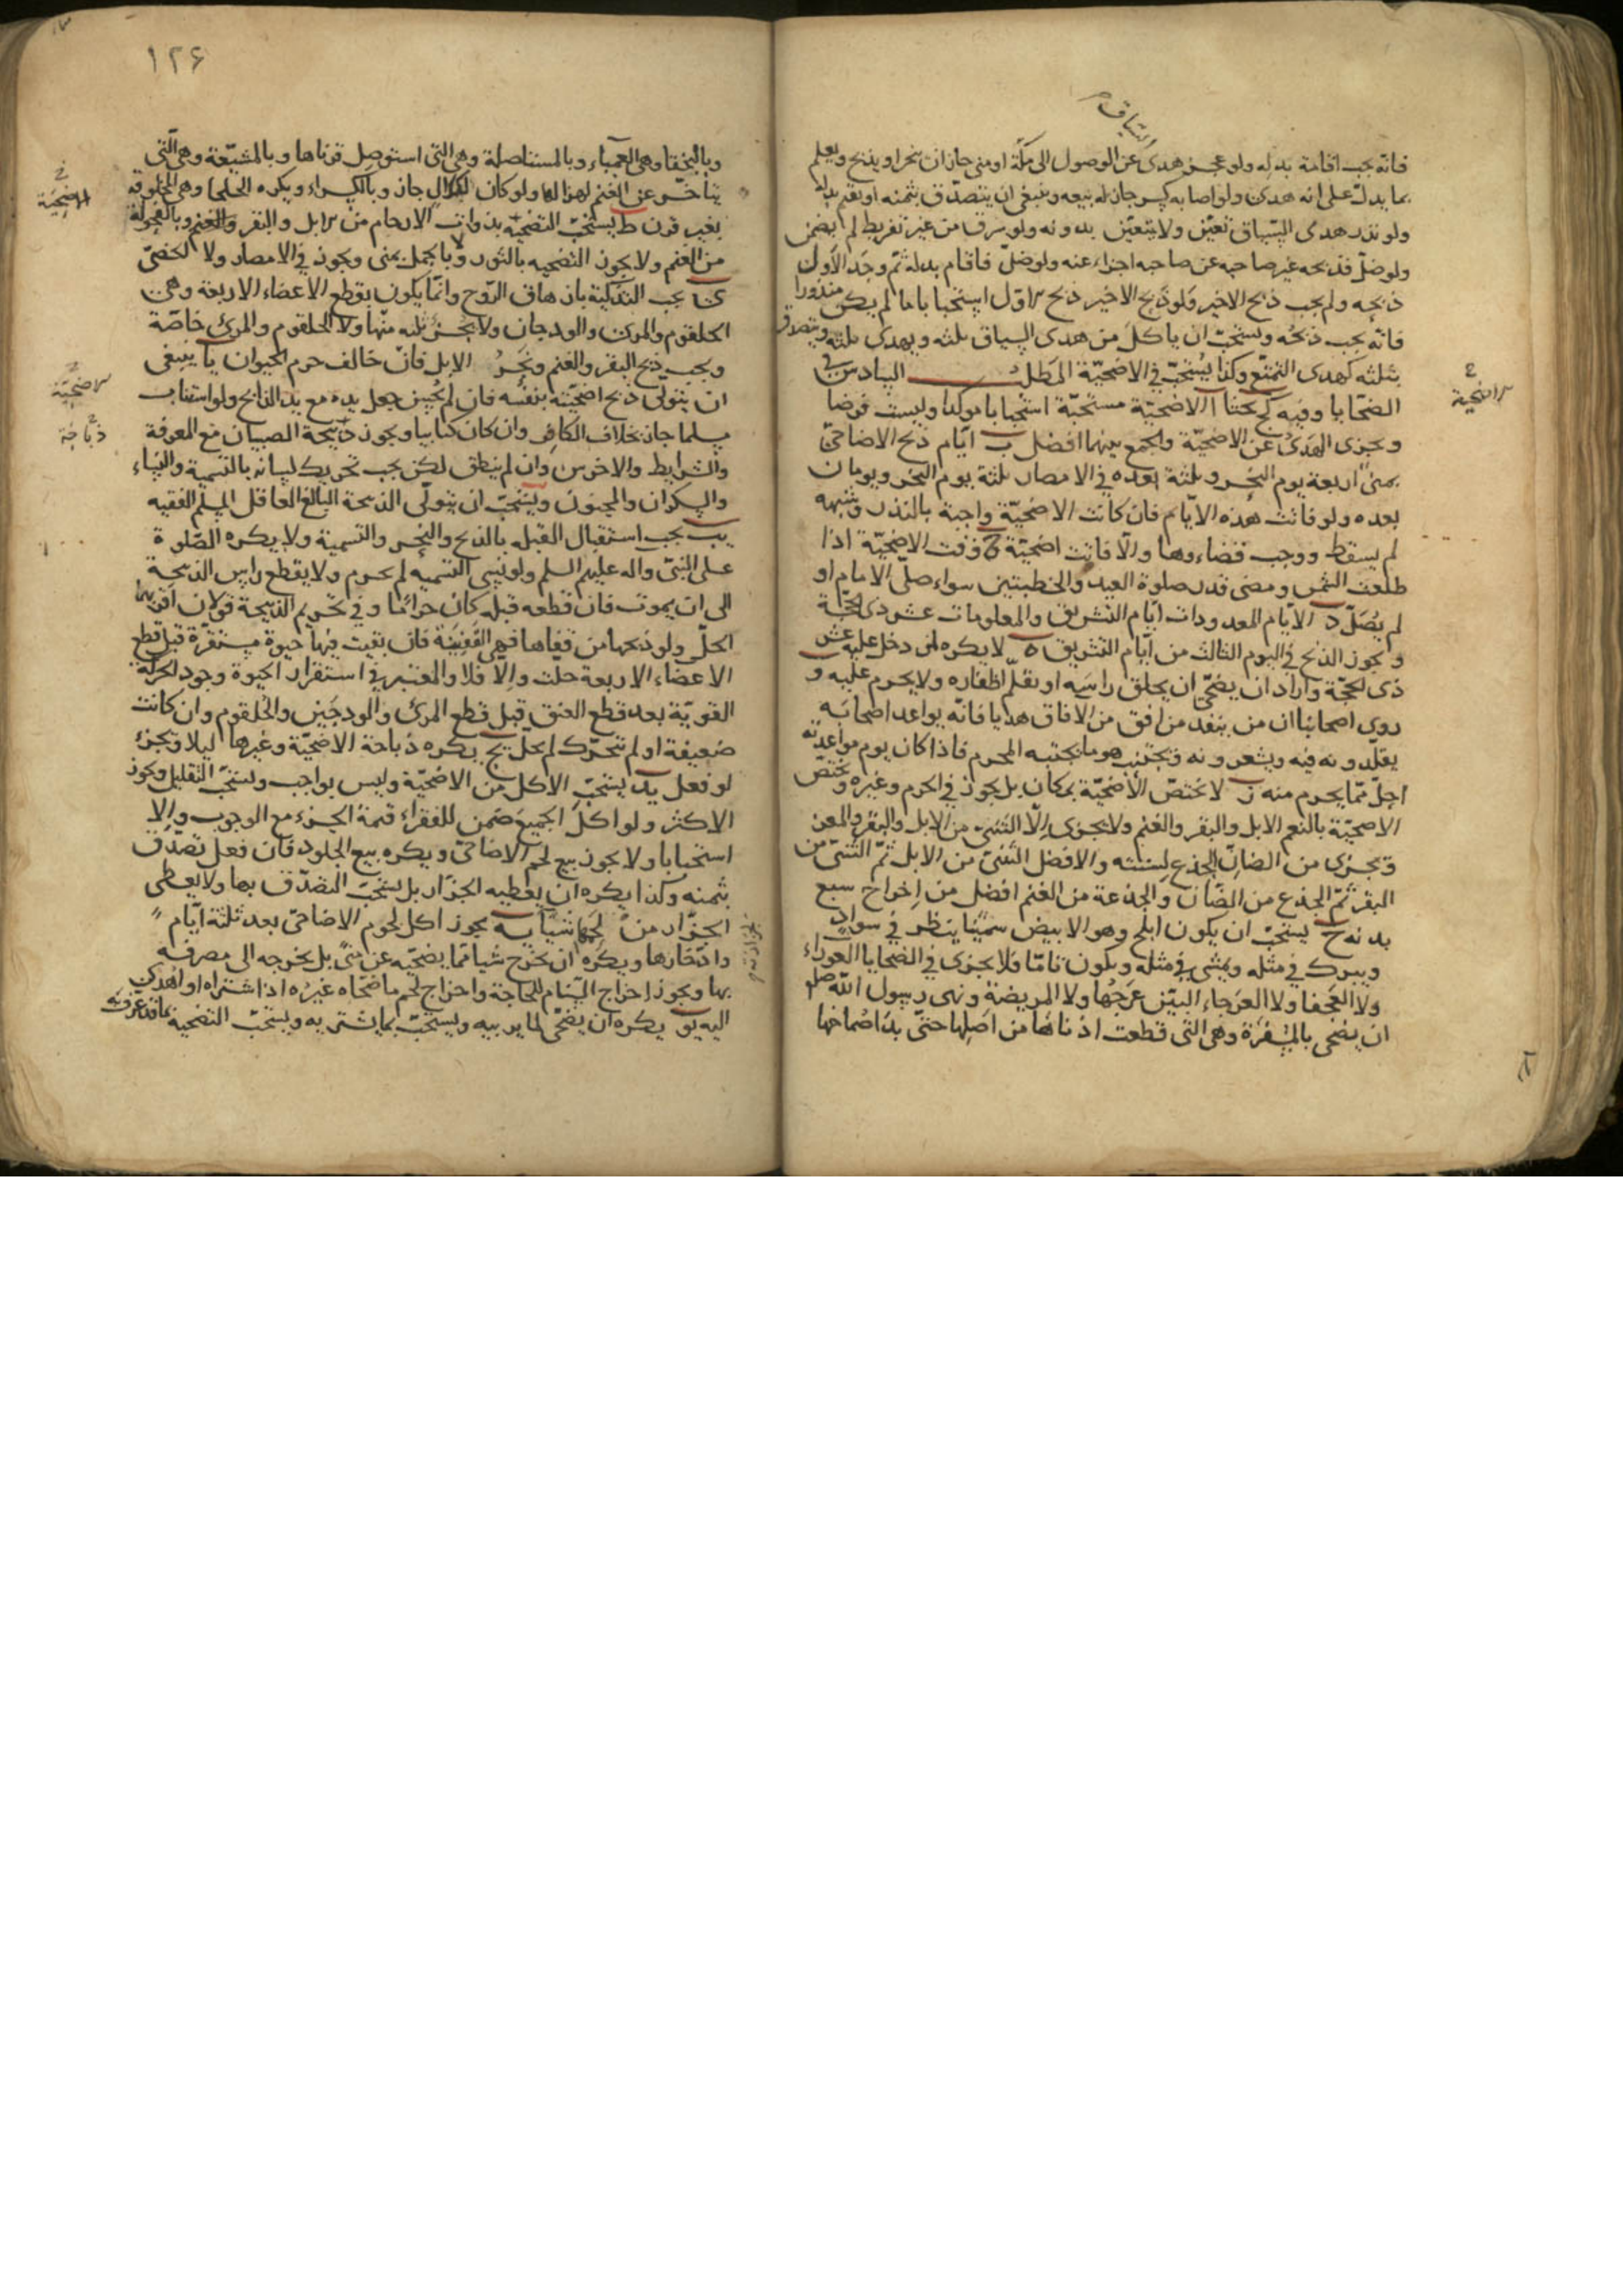 السياق
فانه يجب اقامة بدله ولو عجز هدى عن الوصول الى مكة او منى جاز ان ينحر او يذبح ويعلم
بما يدل على انه هدى ولو اصابه كسر جاز له بيعه وينبغى ان يتصدق بثمنه او يقيم بدله
ولو نذر هدى السياق تعين ولا يتعين بدونه ولو سرق من غير تفريط لم يضمن
ولو ضل فذبحه غير صاحبه عن صاحبه اجزاء عنه ولو ضل فاقام بدله ثم وجد الاول
ذبحه ولم يجب ذبح الاخير ولو ذبح الاخير ذبح الاول استحبابا ما لم يكن منذورا
فانه يجب ذبحه ويستحب ان ياكل من هدى السياق ثلثه ويهدى ثلثه ويتصدق
بثلثه كهدى التمتع وكذا يستحب في الاضحية المطلب السادس في
الضحايا وفيه كج بحثا ا الاضحية مستحبة استحبابا موكدا وليست فرضا
ويجزى الهدى عن الاضحية والجمع بينهما افضل ب ايام ذبح الاضاحى
بمنى اربعة يوم النحر وثلثة بعده في الامصار ثلثة يوم النحر ويومان
بعده ولو فاتت هذه الايام فان كانت الاضحية واجبة بالنذر وشبهه
لم يسقط ووجب قضاءوها والا فاتت اضحية ج وقت الاضحية اذا
طلعت الشمس ومضى قدر صلوة العيد والخطبتين سواء صلى الامام او
لم يصل د الايام المعدودات ايام التشريق والمعلومات عشر ذى الحجة
ويجوز الذبح في اليوم الثالث من ايام التشريق ه لا يكره لمن دخل عليه عشر
ذى الحجة واراد ان يضحى ان يحلق راسه او يقلم اظفاره ولا يحرم عليه و
روى اصحابنا ان من ينفد من افق من الافاق هديا فانه يواعد اصحابه
يقلدونه فيه ويشعرونه ويجتنب هو ما يجتنبه المحرم فاذا كان يوم مواعدته
احل مما يحرم منه ز لا تختص الاضحية بمكان بل يجوز في الحرم وغيره وتختص
الاضحية بالنعم الابل والبقر والغنم ولا يجزى الا الثنى من الابل والبقر والمعز
ويجزى من الضان الجذع لسنته والافضل الثنى من الابل ثم الثنى من
البقر ثم الجذع من الضان والجذعة من الغنم افضل من اخراج سبع
بدنه ح يستحب ان يكون املح وهو الابيض سمينا ينظر في سواد
ويبرك في مثله ويمشى في مثله ويكون تاما فلا يجزى في الضحايا العوراء
ولا العجفا ولا العرجاء البين عرجها ولا المريضة ونهى رسول الله صلع
ان يضحى بالمسفرة وهى التى قطعت اذناها من اصلها حتى بدا صماخها
الاضحية
١٢۶
وبالبخقا وهى العمياء وبالمستاصلة وهى التى استوصل قرناها وبالمشيعة وهى التى
يتاخر عن الغنم لهزالها ولو كان لكلال جاز وبالكسراء ويكره الجلحا وهى المخلوقه
بغير قرن ط يستحب التضحية بذوات الارحام من الابل والبقر والغنم وبالفحولة
من الغنم ولا يجوز التضحيه بالثور ولا بالجمل بمنى ويجوز في الامصار ولا الخصى
ى يجب التذكية بازهاق الروح وانما يكون بقطع الاعضاء الاربعة وهى
الحلقوم والمرى والودجان ولا يجزئ ثلثه منها ولا الحلقوم والمرئ خاصة
ويجب ذبح البقر والغنم ونحر الابل فان خالف حرم الحيوان يا ينبغى
ان يتولى ذبح اضحيته بنفسه فان لم يحسن جعل يده مع يد الذابح ولو استناب
مسلما جاز بخلاف الكافر وان كان كتابيا ويجوز ذبيحة الصبيان مع المعرفة
والشرايط والاخرس وان لم ينطق لكن يجب تحريك لسانه بالتسمية والنساء
والسكران والمجنون ويستحب ان يتولى الذبيحة البالغ العاقل المسلم الفقيه
يب يجب استقبال القبله بالذبح والنحر والتسمية ولا يكره الصلوة
على النبى واله عليهم السلم ولو نسى التسميه لم يحرم ولا يقطع راس الذبيحة
الى ان يموت فان قطعه قبله كان حراما وفي تحريم الذبيحة قولان اقربهما
الحل ولو ذبحها من قفاها فهى القفينة فان بقيت فيها حيوة مستقرة قبل قطع
الاعضاء الاربعة حلت والا فلا والمعتبر في استقرار الحيوة وجود الحركة
القوية بعد قطع العنق قبل قطع المرئ والودجين والحلقوم وان كانت
ضعيفة او لم تتحرك لم يحل يج يكره ذباحة الاضحية وغيرها ليلا ويجزئ
لو فعل يد يستحب الاكل من الاضحية وليس بواجب ويستحب التقليل ويجوز
الاكثر ولو اكل الجميع ضمن للفقراء قيمة الجزء مع الوجوب والا
استحبابا ولا يجوز بيع لحم الاضاحى ويكره بيع الجلود فان فعل تصدق
بثمنه وكذا يكره ان يعطيه الجزار بل يستحب التصدق بها ولا يعطى
الجزار من لحمها شيئا يه يجوز اكل لحوم الاضاحى بعد ثلثة ايام
وادخارها ويكره ان يخرج شيا مما يضحيه عن منى بل يخرجه الى مصرفه
بها ويجوز اخراج السنام للحاجة واخراج لحم ما ضحاه غيره اذا اشتراه او اهدى
اليه يو يكره ان يضحى بما يربيه ويستحب بما يشتريه ويستحب التضحية بما قد عرف به
الاضحية
الاضحية
ذباحة